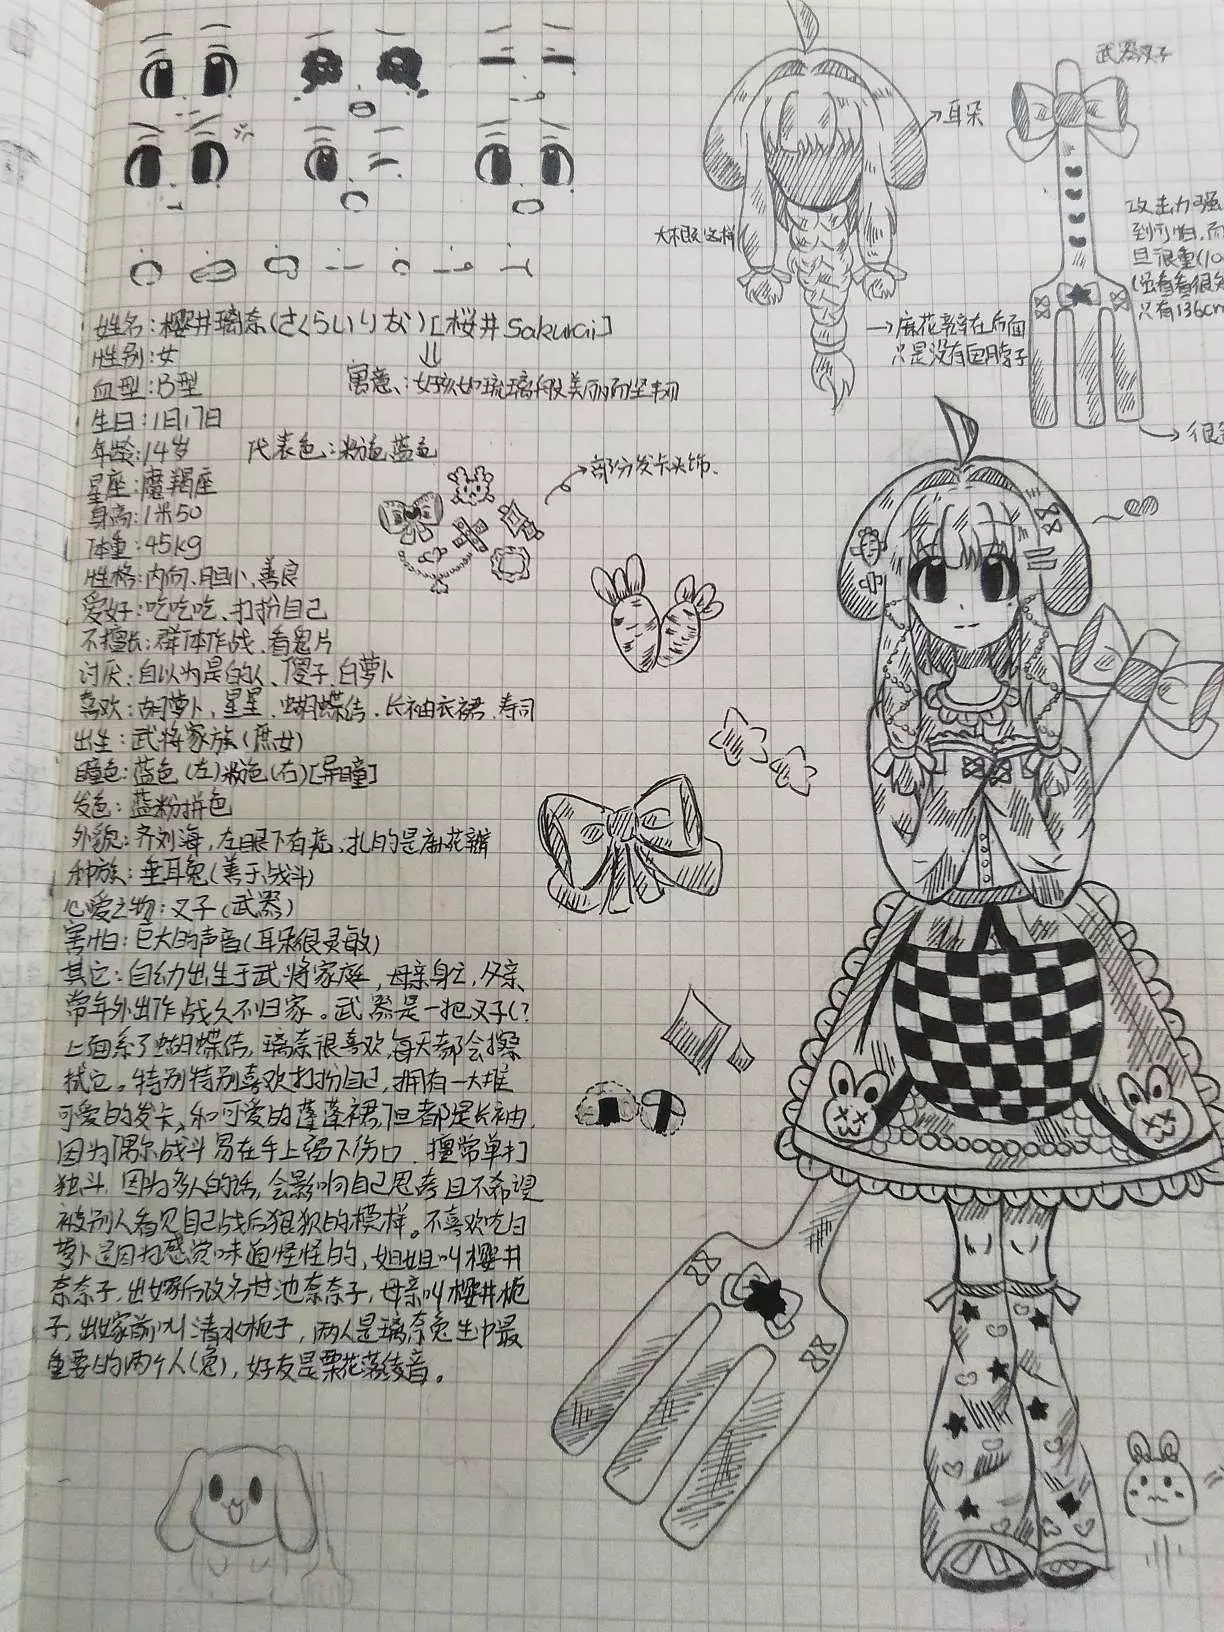 武器叉子
耳朵
大概这样
攻击力强
到可怕,而
且很重(10
(虽看着很
只有136cm
→麻花辫在后面
只是没有画脖子
姓名:櫻井璃奈(さくらいりな)[桜井Sakurai]
性别:女
血型:B型
寓意:女孩如琉璃般美丽而坚韧
生日:1日17日
年龄:14岁
代表色:粉色蓝色
星座:魔羯座
部分发卡头饰.
身高:1米50
体重:45kg
性格:内向、胆小、善良
爱好:吃吃吃、打扮自己
不擅长:群体作战、看鬼片
讨厌:自以为是的人、傻子、白萝卜
喜欢:胡萝卜、星星、蝴蝶结、长袖衣裙、寿司
出生:武将家族(庶女)
瞳色:蓝色(左)粉色(右)[异瞳]
发色:蓝粉拼色
外貌:齐刘海,左眼下有痣、扎的是麻花辫
种族:垂耳兔(善于战斗)
心爱之物:叉子(武器)
害怕:巨大的声音(耳朵很灵敏)
其它:自幼出生于武将家庭,母亲身亡,父亲
常年外出作战久不归家。武器是一把叉子(?
上面系了蝴蝶结,璃奈很喜欢,每天都会擦
拭它。特别特别喜欢打扮自己,拥有一大堆
可爱的发卡,和可爱的蓬蓬裙,但都是长袖,
因为偶尔战斗易在手上留下伤口,擅常单打
独斗,因为多人的话,会影响自己思考且不希望
被别人看见自己战后狼狈的模样。不喜欢吃白
萝卜是因为感觉味道怪怪的,姐姐叫櫻井
奈奈子,出嫁后改名世池奈奈子,母亲叫櫻井栀
子,出嫁前叫清水栀子,两人是璃奈兔生中最
重要的两个人(兔),好友是栗花落绫音。